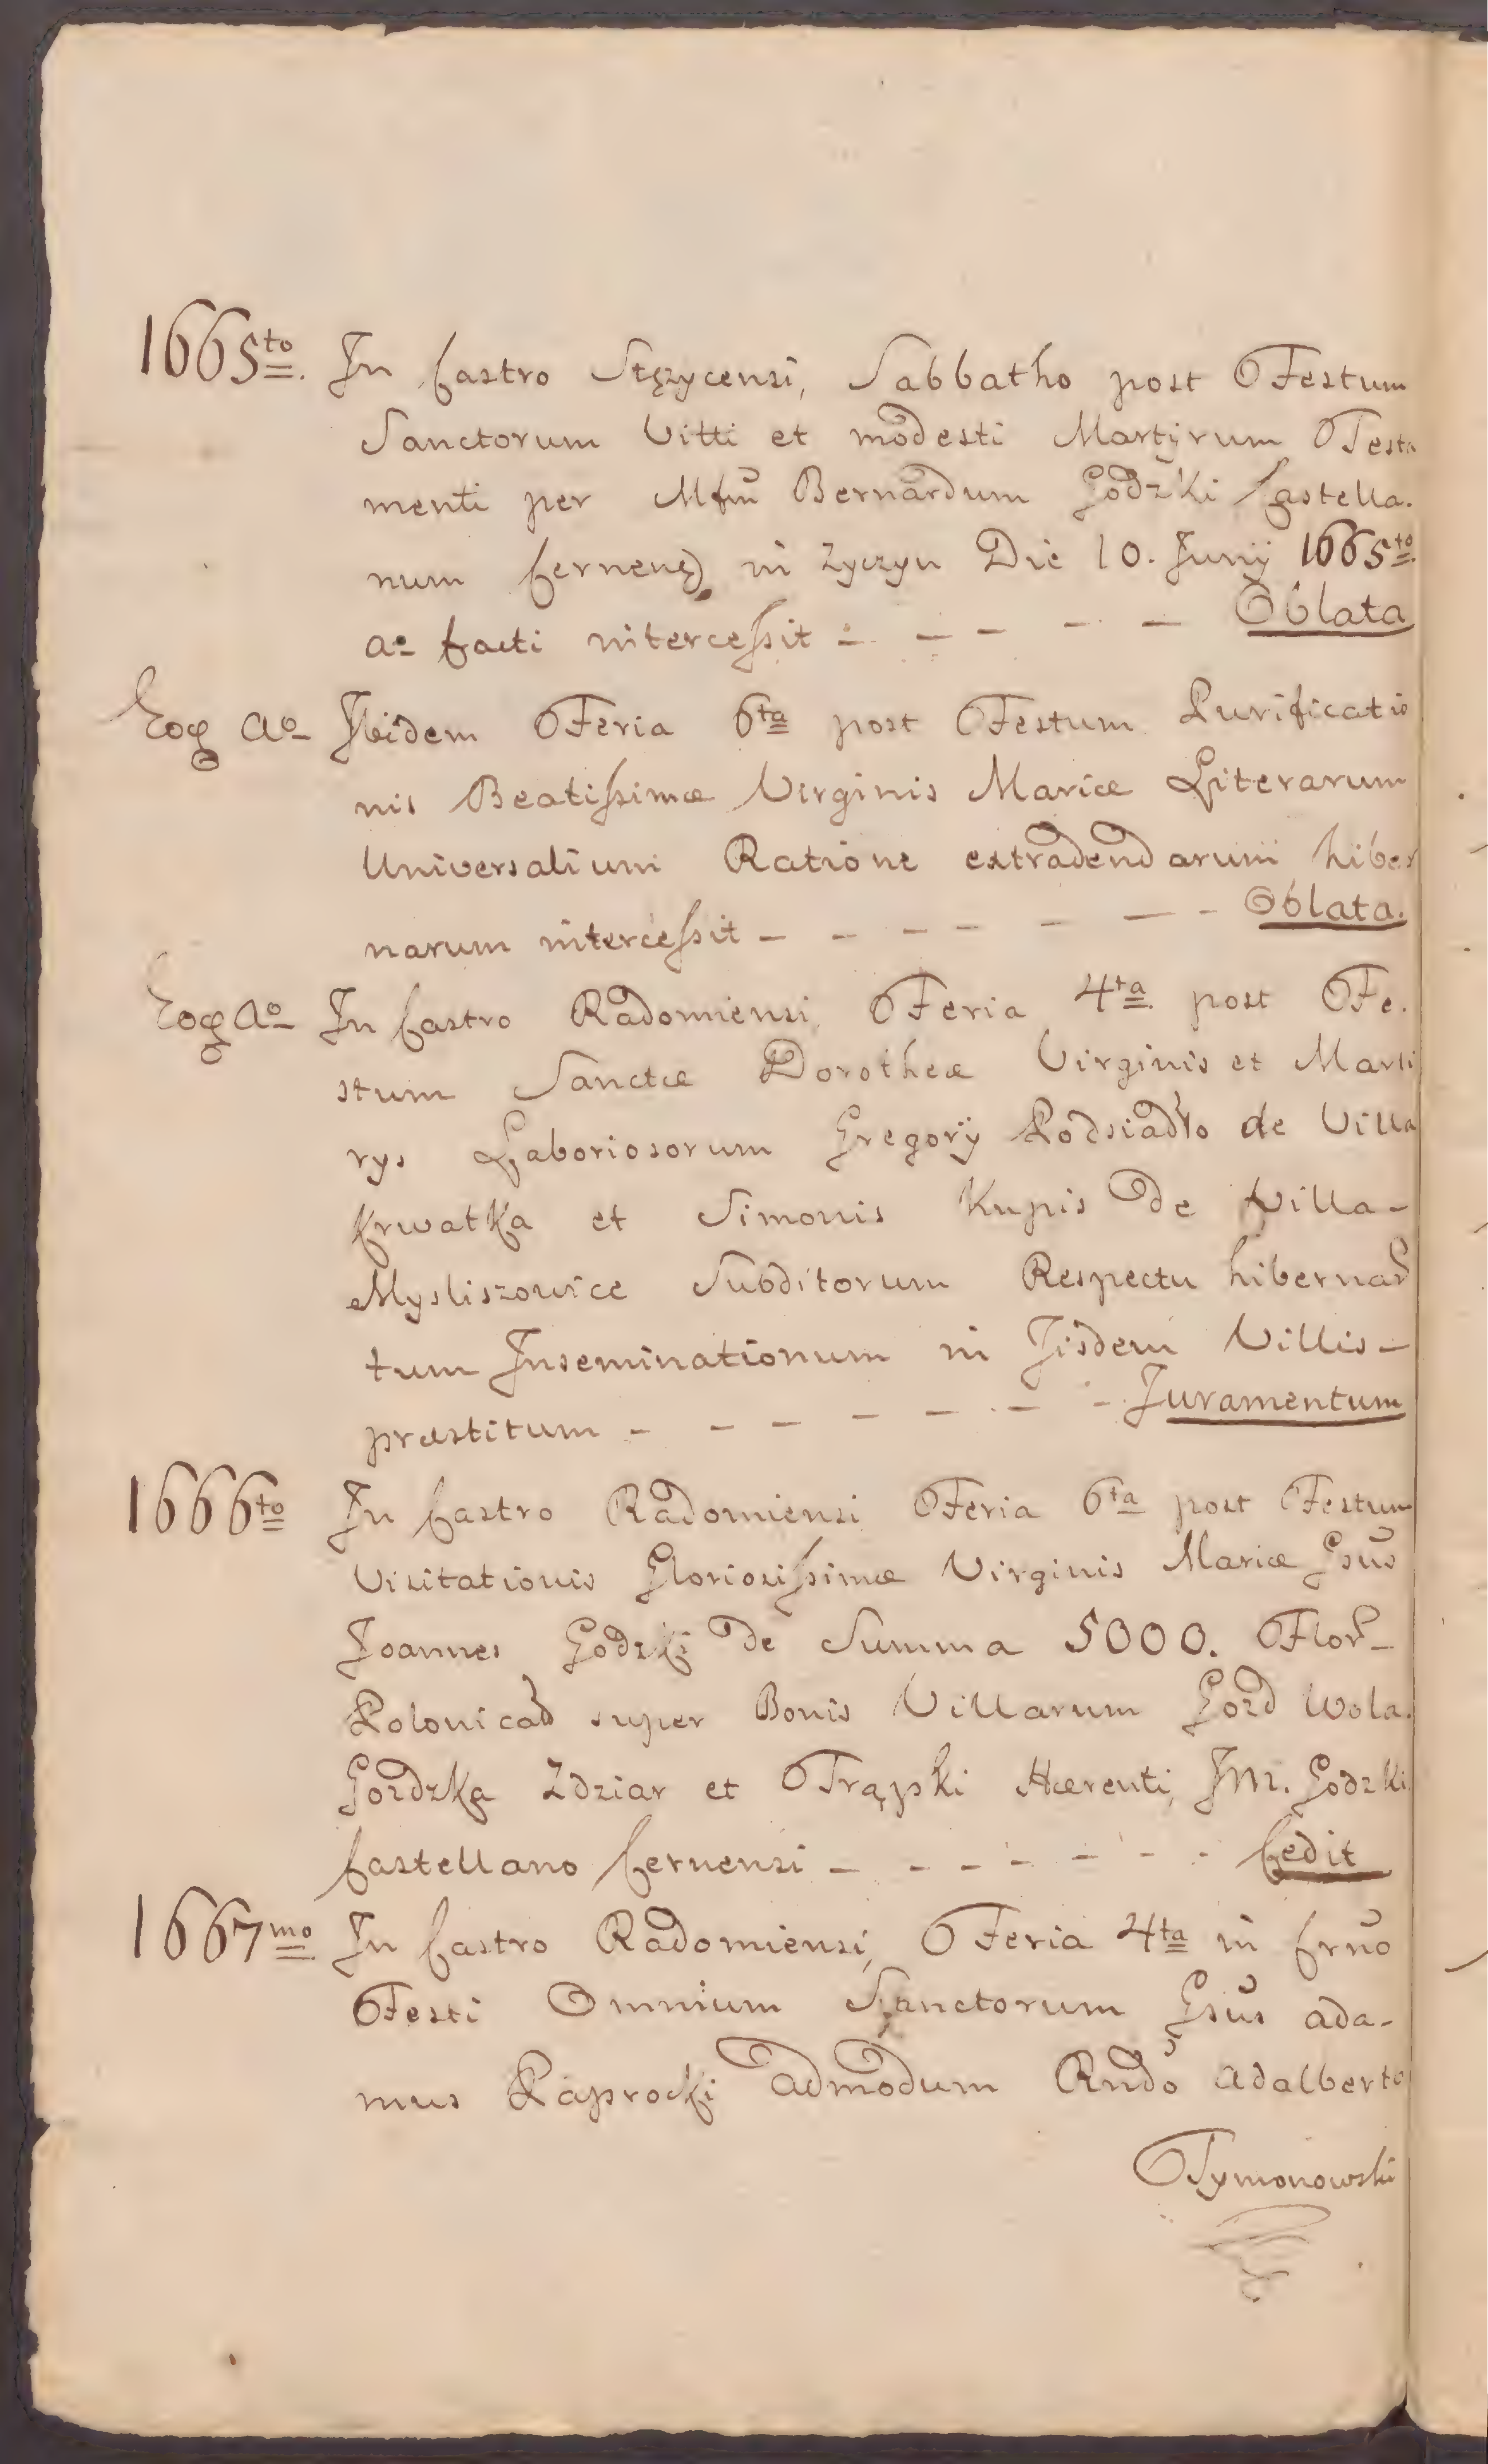 1665to. In Castro Stęzycensi, Sabbatho post Festum
Sanctorum Vitti et modesti Martÿrum Testa
menti per Mfm̃ Bernardum Godzki Castella.
num Cernen̄ in Zyczyn Die 10. Junÿ 1665to
ao facti intercessit - - - - - Oblata
Eoq Ao Ibidem Feria 6ta post Festum Purificatio
nis Beatissimæ Virginis Mariæ Literarum
Universalium Ratione extradendarum hiber
narum intercessit - - - - - - - Oblata.
Eoq Ao In Castro Radomiensi, Feria 4ta post Fe.
stum Sanctæ Dorotheæ Virginis et Marti
rys Laboriosorum Gregorÿ Podsiadło de Villa
Krwatka et Simonis Kupis de Villa -
Mysliszowice Subditorum Respectu hibernar
tum Inseminationum in Iisdem Villis -
præstitum - - - - - - - Juramentum
1666to In Castro Radomiensi Feria 6ta post Festum
Visitationis Gloriosissimæ Virginis Mariæ Gsũs
Joannes Godzki de Summa 5000. Flor -
Polonical super Bonis Villarum Gozd Wola.
Gozdzka Zdziar et Trąpki Hærenti, Jm. Godzki
Castellano Cernensi - - - - - - - Cedit
1667mo In Castro Radomiensi, Feria 4ta in Crño
Festi Omnium Sanctorum Gsũs ada-
mus Paprocki admodum Rndo adalberto
Tymonowski